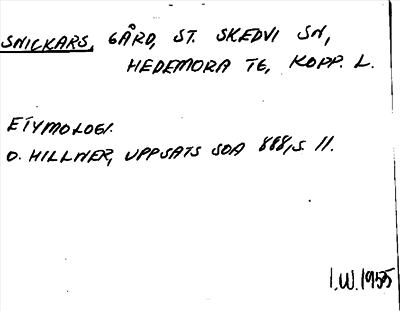 SNICKARS, GÅRD, ST. SKEDVI SN,
HEDEMORA TG, KOPP. L.
ETYMOLOGI.
O. HILLNER, UPPSATS SOA 888, S 11.
I.W. 1955